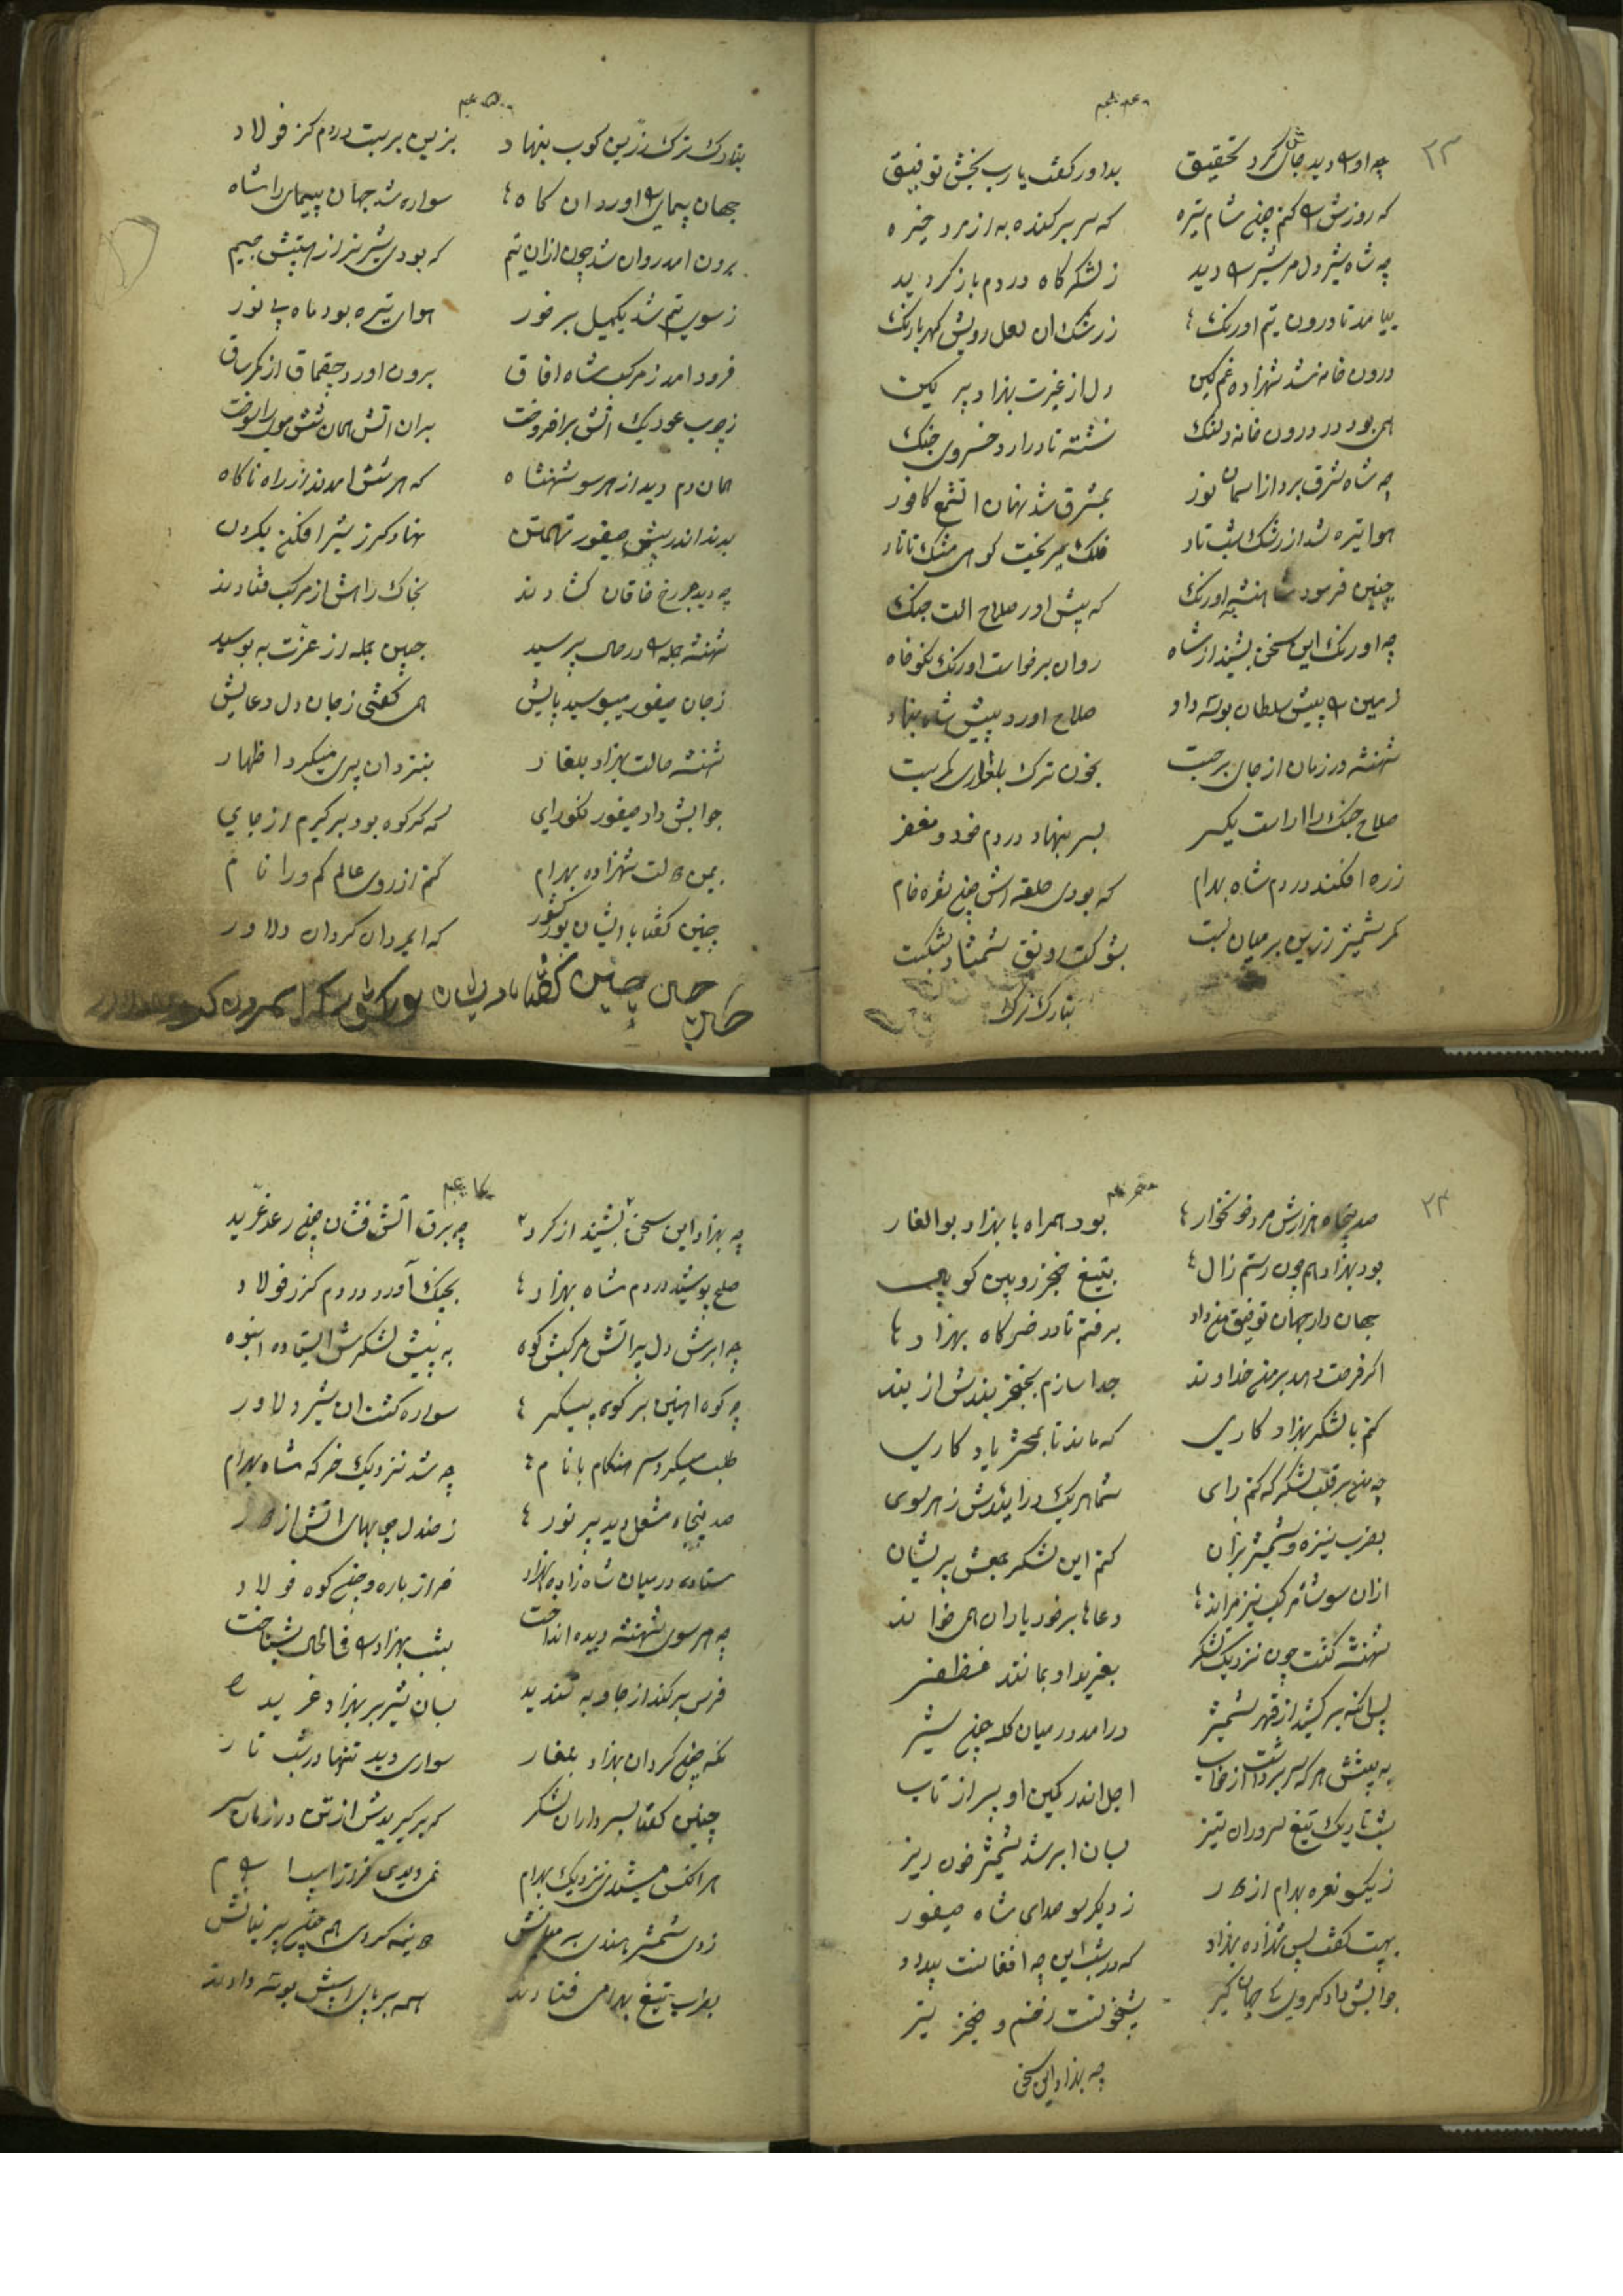 ۲۳
چه او را دید جان کرد تحقیق بداور کفت یارب بخش توفیق
که روزش را کنم چون شام تیره که سر برکنده به از مرد خیره
چه شاه شیر دل مر شیر را دید ز لشکرگاه در دم باز کردید
بیامد تا درون یتم اورنک ز رشک ان لعل رویش کهربا رنک
درون خانه شد شهزاده غمکین دل از غیرت بهزاد پر کین
همی بود در درون خانه دلتنک نشسته تا در ارد خسروی جنک
چه شاه شرق برد از اسمان نور بمشرق شد نهان ان شمع کافور
هوا تیره شد از رشک شب تار فلک میریخت کوهی مشک تاتار
چنین فرمود شاهنشه اورنک که پیش اور صلاح الت جنک
چه اورنک این سخن بشنید از شاه روان برخواست اورنک نکوخاه
زمین را پیش سلطان بوسه داد صلاح اورد پیش شاه بنهاد
شهنشه در زمان از جای برجست بخون ترک بلغاری کمر بست
صلاح جنک را اراست یکسر بسر بنهاد در دم خود و مغفر
زره افکند در دم شاه بهرام که بودی حلقه اش چون نقره خام
کمر شمشیر زرین بر میان بست بشوکت رونق شمشاد بشکست
بتارک ترک
بتارک ترک زرین کوب بنهاد بزین بر بست در دم کرز فولاد
جهان پیمای را اورد ان کاه سواره شد جهان پیمای را شاه
برون امد روان شد چون ازان یتم که بودی شیر نر از هیبتش بیم
ز سوی یتم شد یکمیل بر فور هوای تیره بود ماه بی نور
فرود امد ز مرکب شاه افاق برون اورد چقماق از کمر ساق
ز چوب عود یک اتش برافروخت بران اتش همان شش موی را سوخت
همان دم دید از هر سو شهنشاه که هر شش امدند از راه ناکاه
بدند اندر پیش صیفور تهمتن نهاد کرز شیر افکن بکردن
چه دیدند رخ خاقان کشادند بخاک راهش از مرکب فتادند
شهنشه جمله را در حال پرسید جبین جمله از عزت به بوسید
ز جان صیفور میبوسید پایش همی کفتی ز جان دل دعایش
شهنشه حالت بهزاد بلغار بنزد ان پری میکرد اظهار
جوابش داد صیفور نکورای که کر کوه بود برکیرم از جای
بیمن دولت شهزاده بهرام کنم از روی عالم کم ورا نام
چنین کفتا با ایشان پور کشور که ایمردان کردان دلاور
۲۴
صد پنجاه هزارش مرد خونخوار بود همراه با بهزاد بوالغار
بود بهزاد هم چون رستم زال بتیغ خنجر زوبین کوپال
جهان دار جهان توفیق من داد برفتم تا در خرکاه بهزاد
اکر فرصت دهد بر من خداوند جدا سازم بخنجر بندش از بند
کنم با لشکر بهزاد کاری که ماند تا بمحشر یاد کاری
چه من بر قلب لشکر که کنم رای شما هر یک درایندش ز هر سوی
بضرب نیزه و شمشیر بران کنم این لشکر جمعش پریشان
ازان سو شاه مرکب تیز میراند دعاها بر خود یاران همی خواند
شهنشه کشت چون نزدیک لشکر بغرید او بمانند غضنفر
پس انکه برکشید از قهر شمشیر درامد در میان کله چون شیر
به پیشش هر که سر برداشت از خاب اجل اندر کمین او سر از تاب
شب تاریک تیغ سروران تیز بسان ابر شد شمشیر خون ریز
ز یکسو نعره بهرام از دور ز دیکر سو صدای شاه صیفور
بهیبت کفت پس شهزاده بهزاد که در شب این چه افغانست بیداد
جوابش داد کردی کای جهان کیر شبیخونست زخم و خنجر تیر
چه بهزاد این سخن
چه بهزاد این سخن بشنید از کرد چه برق اتش فشان چون رعد غرید
صلح پوشید در دم شاه بهزاد بجنک آورد در دم کرز فولاد
چه ابرش دل پر اتش مرکبش کوه به پیش لشکرش ایستاده انبوه
چه کوه اهنین بر کوه پیکر سواره کشت ان شیر دلاور
طلب میکرد هنکام با نام چه شد نزدیک خرکه شاه بهرام
صد پنجاه مشعل دید پر نور ز صندل چوبهای اتش از دور
ستاده در میان شاه زاده بهزاد فراز باره چون کوه فولاد
چه هر سوی شهنشه دیده انداخت بشب بهزاد را فی الحال بشناخت
فرس برکند از جا و به تندید بسان شیر بر بهزاد غرید
نکه چون کرد ان بهزاد بلغار سواری دید تنها در شب تار
چنین کفتا بسرداران لشکر که برکیریدش از تن در زمان سر
هر انکس میشدی نزدیک بهرام
زدی شمشیر هندی بر میانش دو نیمه کردی هم چون پرنیانش
بضرب تیغ بهرامی فتادند همه بر پای اسپش بوسه دادند